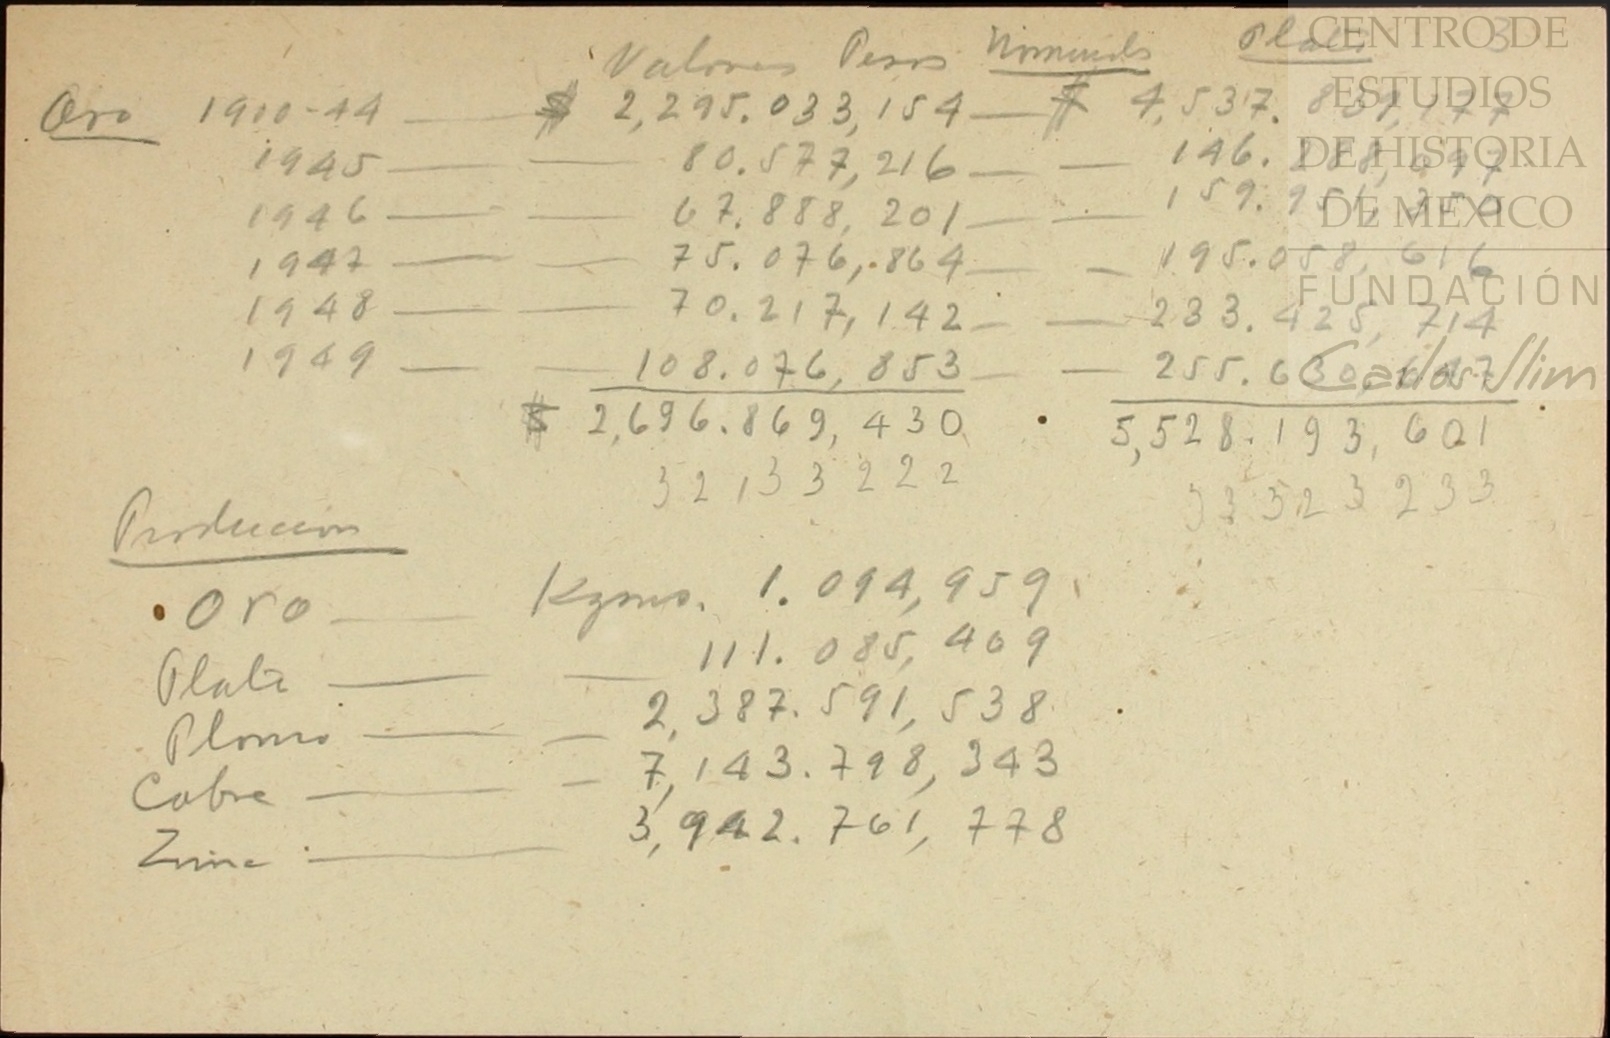 Valores Pesos Nominales Plata 3
Oro 1900-44 — $ 2,295.033,154 — $ 4,537.839,177
1945 — — 80.577,216 — — 146.288,097
1946 — — 67.888,201 — — 159.951,350
1947 — — 75.076,864 — — 195.058,616
1948 — — 70.217,142 — — 233.425,714
1949 — — 108.076,853 — — 255.630,647
$ 2,696.869,430 5,528.193,601
32133222
Producción
Oro — Kgmos. 1.094,959
Plata — — 111.085,409
Plomo — — 2,387.591,538
Cobre — — 7,143.798,343
Zinc — 3,942.761,778
CENTRO DE
ESTUDIOS
DE HISTORIA
DE MÉXICO
FUNDACIÓN
Carlos Slim